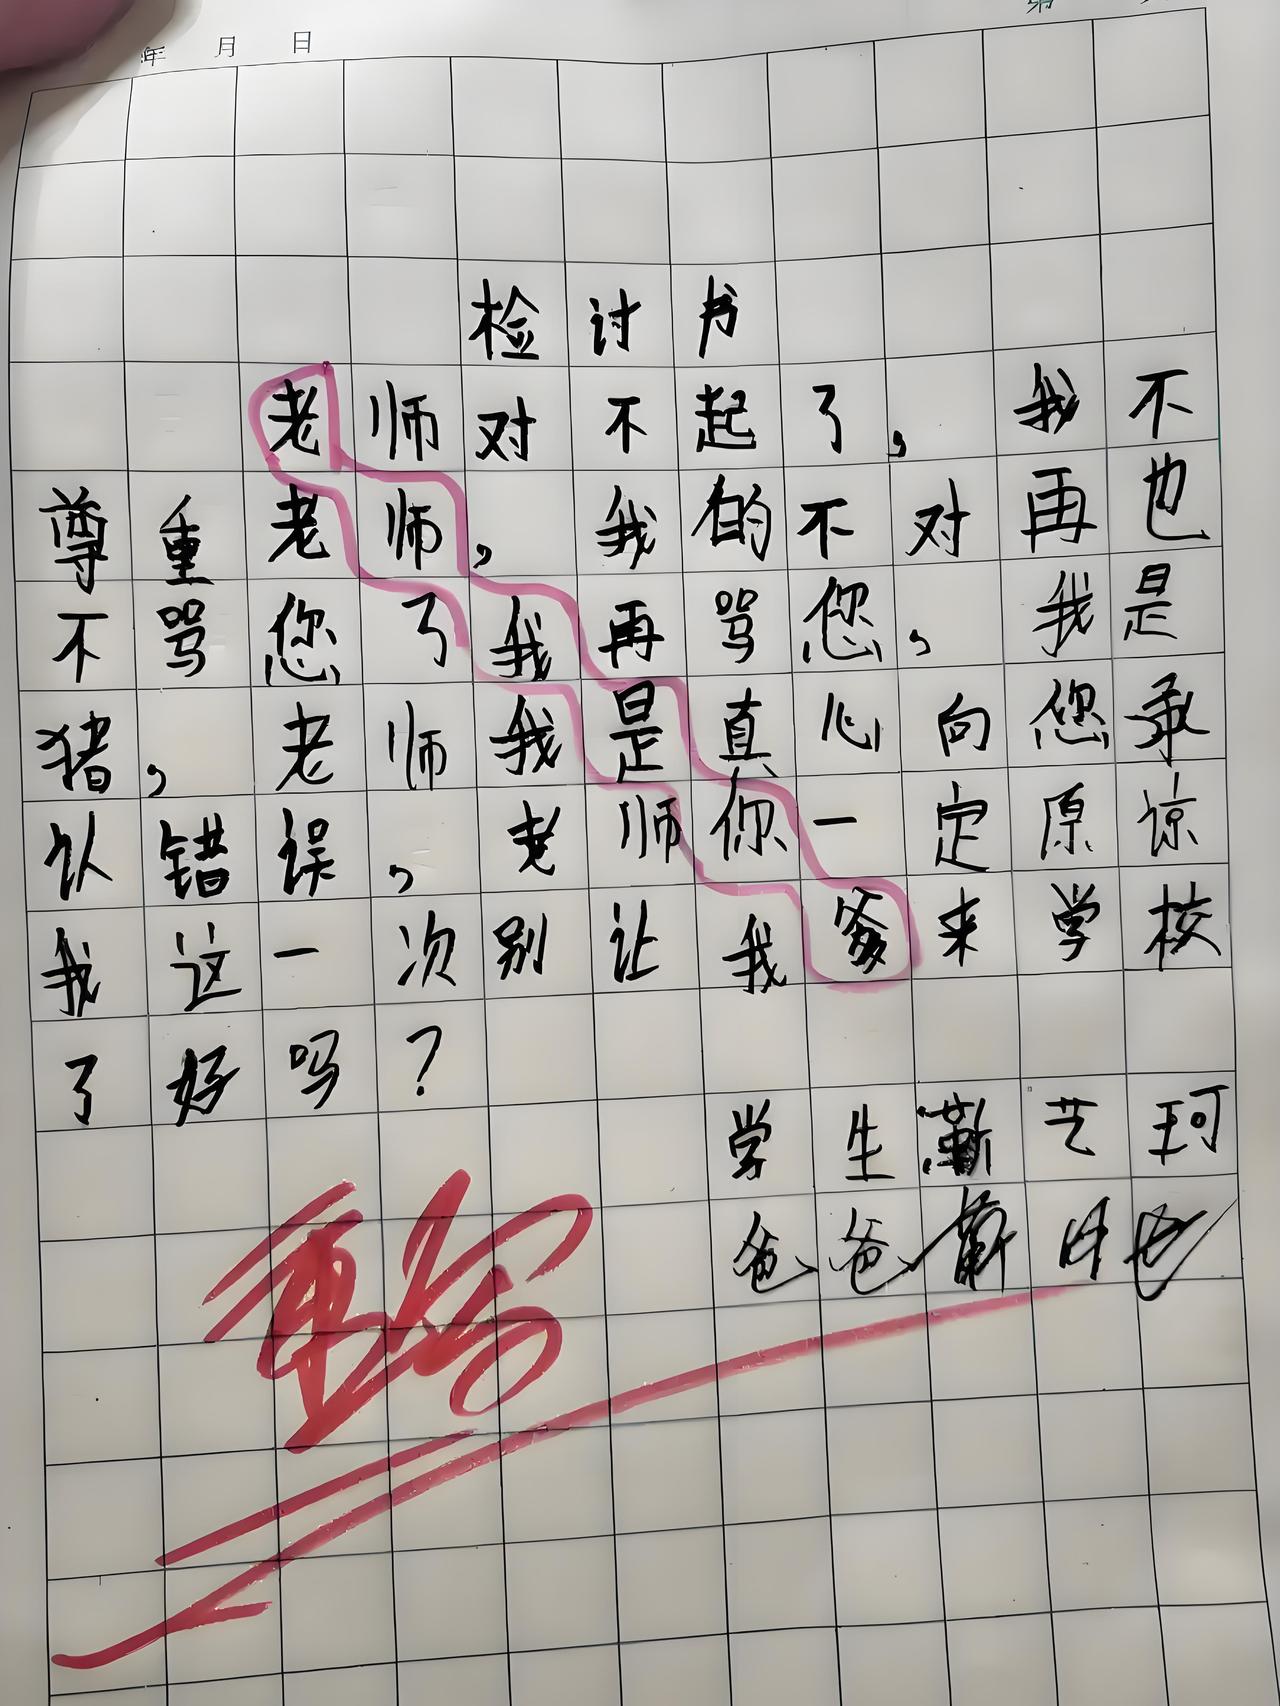 年 月 日
第
检讨书
老师对不起了，我不
尊重老师，我的不对再也
不骂您了我再骂您，我是
猪，老师我是真心向您承
认错误，老师你一定原谅
我这一次别让我爹来学校
了好吗？
学生靳艺珂
爸爸靳
重写